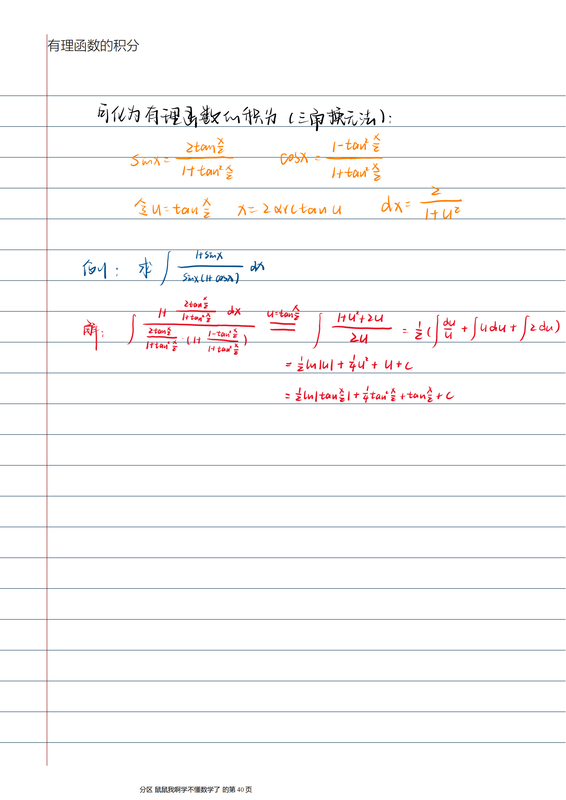 有理函数的积分
可化为有理函数的积分(三角换元法):
sinx = \frac{2tan\frac{x}{2}}{1+tan²\frac{x}{2}} cosx = \frac{1-tan²\frac{x}{2}}{1+tan²\frac{x}{2}}
令u=tan\frac{x}{2} x=2arctanu dx=\frac{2}{1+u²}
例1: 求∫\frac{1+sinx}{sinx(1+cosx)}dx
解: ∫\frac{1+\frac{2tan\frac{x}{2}}{1+tan²\frac{x}{2}} dx}{\frac{2tan\frac{x}{2}}{1+tan²\frac{x}{2}}·(1+\frac{1-tan²\frac{x}{2}}{1+tan²\frac{x}{2}})} \xlongequal{u=tan\frac{x}{2}} ∫\frac{1+u²+2u}{2u} = \frac{1}{2}(∫\frac{du}{u}+∫udu+∫2du)
= \frac{1}{2}ln|u|+\frac{1}{4}u²+u+c
= \frac{1}{2}ln|tan\frac{x}{2}|+\frac{1}{4}tan²\frac{x}{2}+tan\frac{x}{2}+c
分区 鼠鼠我啊学不懂数学了 的第 40 页